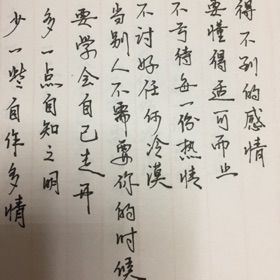 得不到的感情
要懂得适可而止
不亏待每一份热情
不讨好任何冷漠
当别人不需要你的时候
要学会自己走开
多一点自知之明
少一些自作多情